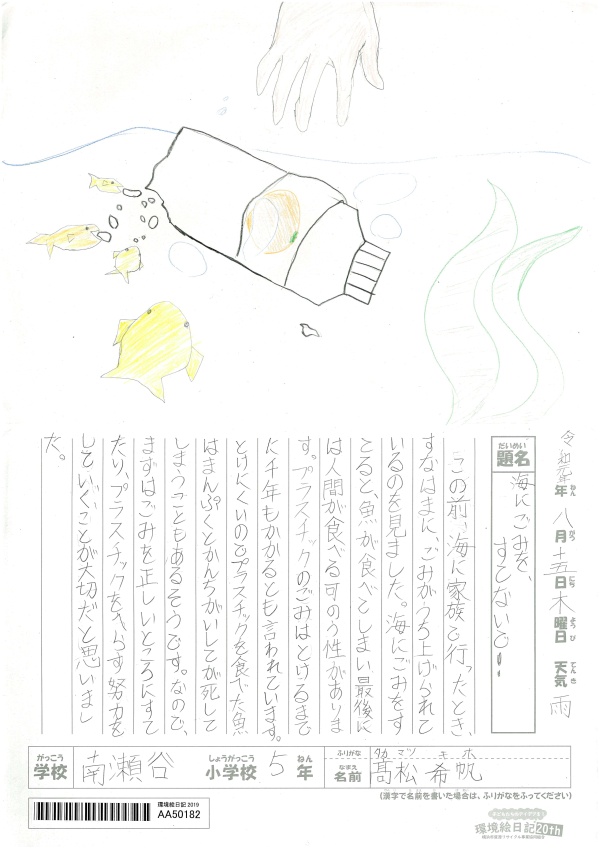 令和元年 八月 十五日 木曜日 天気 雨
ねん がつ にち ようび てんき
だいめい
題名
海にごみを、
すてないで!
この前、海に家族で行ったとき、
すなはまに、ごみがうち上げられて
いるのを見ました。海にごみをす
てると、魚が食べてしまい最後に
は人間が食べる可のう性がありま
す。プラスチックのごみはとけるまで
に千年もかかるとも言われています。
とけにくいのでプラスチックを食べた魚
はまんぷくとかんちがいしてが死して
しまうこともあるそうです。なので、
まずはごみを正しいところにすて
たり、プラスチックをへらす努力を
していくことが大切だと思いまし
た。
がっこう しょうがっこう ねん ふりがな タカ マツ キ ホ
学校 南瀬谷 小学校 5 年 なまえ 名前 髙松 希帆
(漢字で名前を書いた場合は、ふりがなをふってください)
環境絵日記 2019
AA50182
環境絵日記 20th